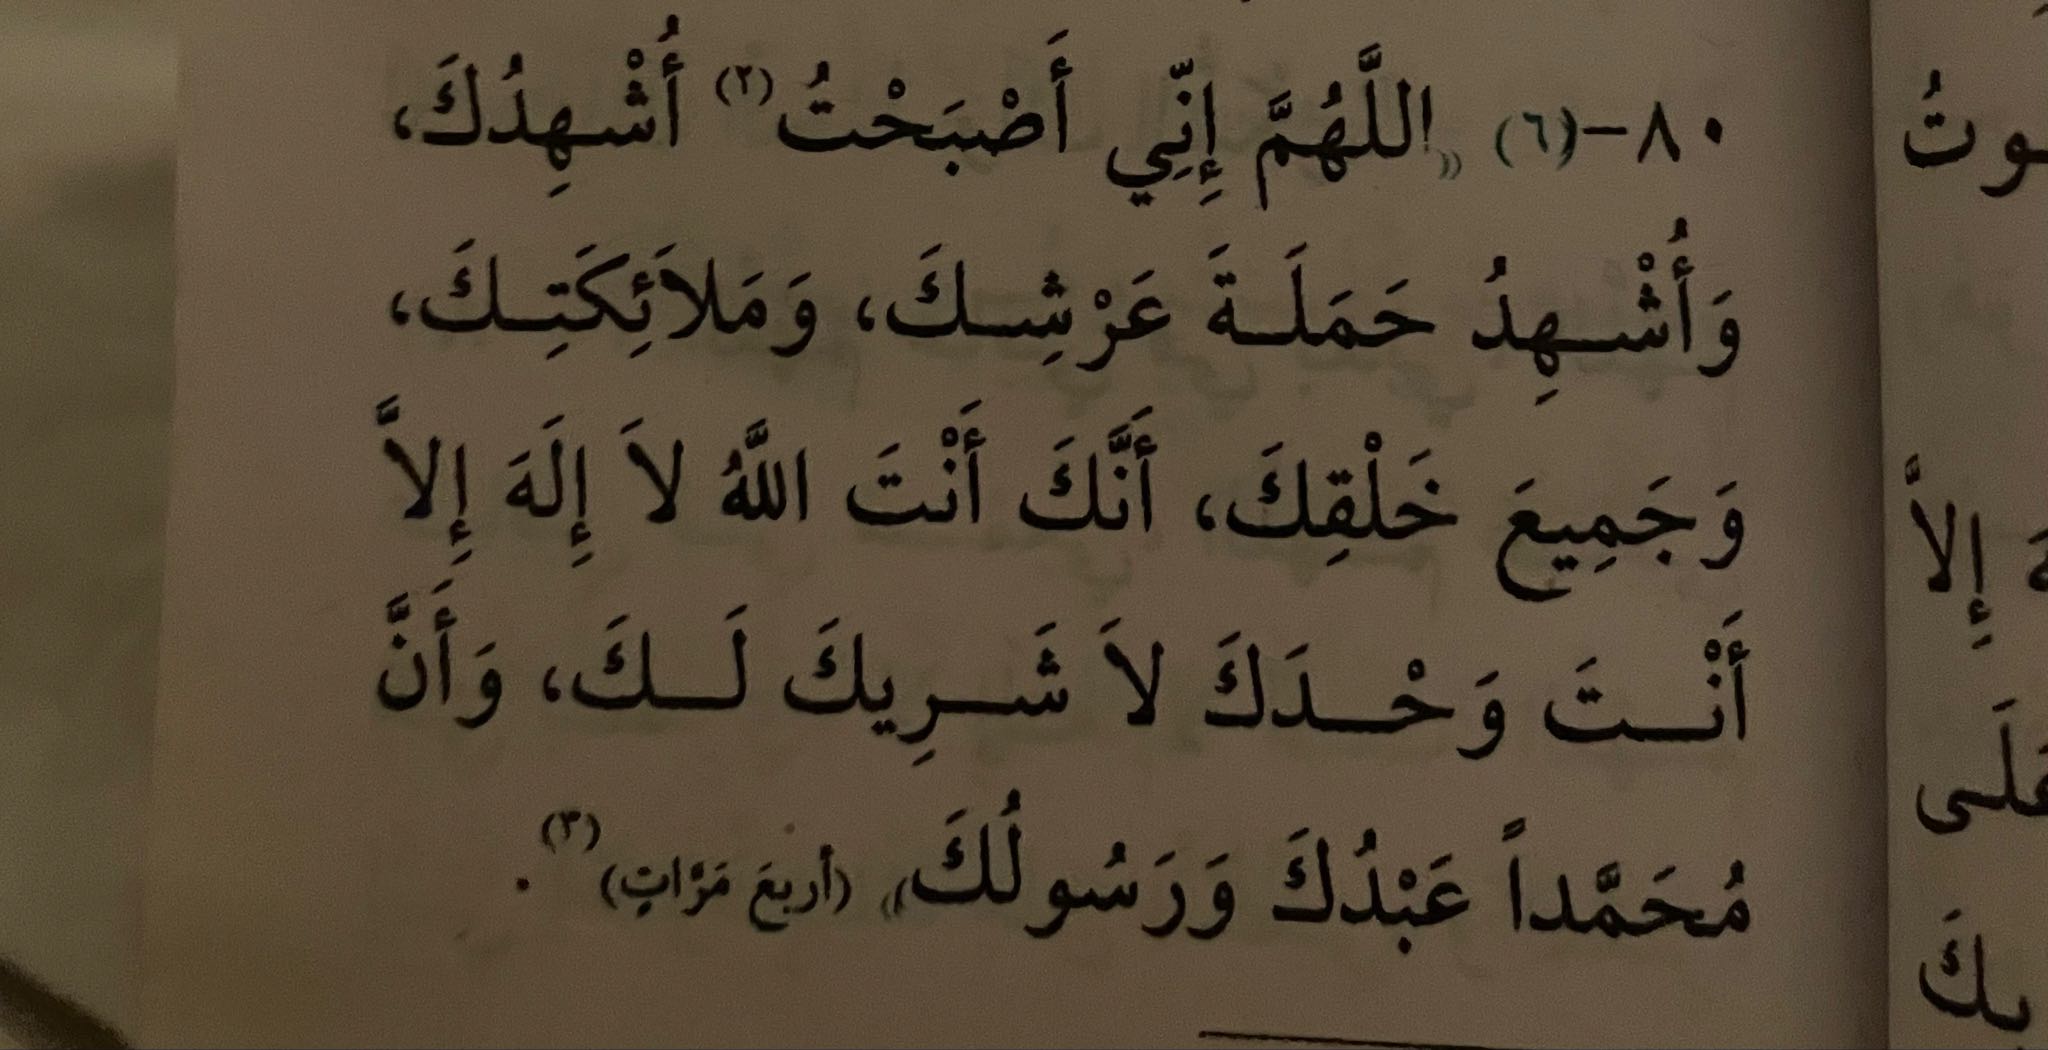 ٨٠-(٦) «اللَّهُمَّ إِنِّي أَصْبَحْتُ(٢) أُشْهِدُكَ،
وَأُشْهِدُ حَمَلَةَ عَرْشِكَ، وَمَلاَئِكَتِكَ،
وَجَمِيعَ خَلْقِكَ، أَنَّكَ أَنْتَ اللَّهُ لاَ إِلَهَ إِلاَّ
أَنْتَ وَحْدَكَ لاَ شَرِيكَ لَكَ، وَأَنَّ
مُحَمَّداً عَبْدُكَ وَرَسُولُكَ» (أربعَ مَرَّاتٍ)(٣).
إِلاَّ